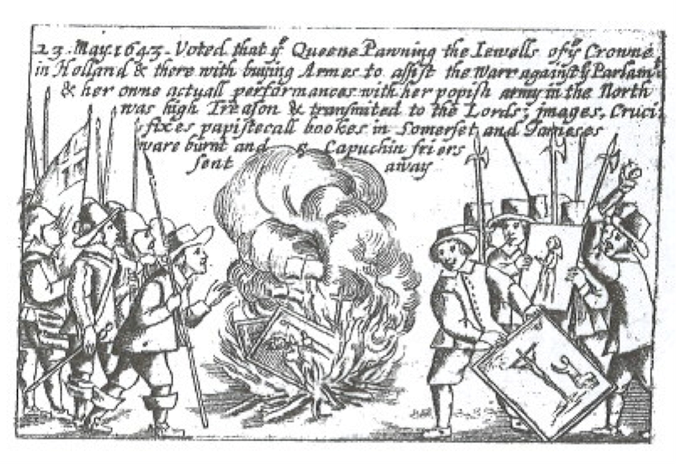 23. May. 1643. Voted that yͤ Queene Pawning the Iewells of yͤ Crowne
in Holland & there with buijng Armes to assist the Warr against yͤ Parlamᵗ
& her owne actuall performances with her popish army in the North
was high Treason & transmited to the Lords, images, Cruci,
fixes papistecall bookes in Somerset and Jameses
ware burnt and 5 Capuchin friers
sent away